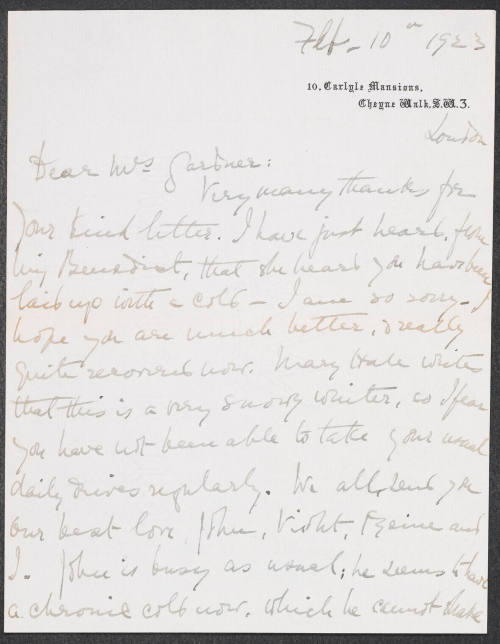 Feb. 10th 1923
10, Carlyle Mansions,
Cheyne Walk, S.W.3.
London
Dear Mrs Gardner:
Very many thanks for
your kind letter. I have just heard, from
Benedict, that she heard you have been
laid up with a cold – I am so sorry – I
hope you are much better, & really
quite recovered now. Mary Hale writes
that this is a very snowy winter, so I fear
you have not been able to take your usual
daily drives regularly. We all send you
our best love, John, Violet, and
I. John is busy as usual; he seems to have
a chronic cold now, which he cannot shake